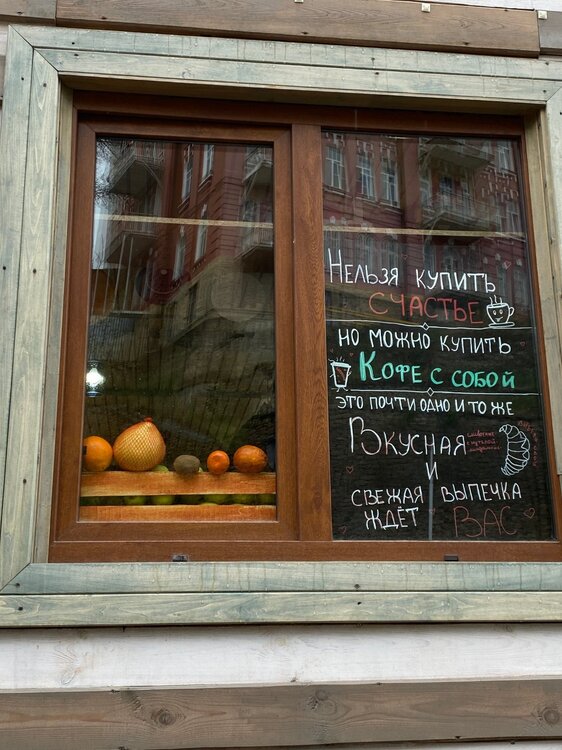 Нельзя купить
счастье
но можно купить
Кофе с собой
это почти одно и то же
Вкусная
и
свежая выпечка
ждёт Вас